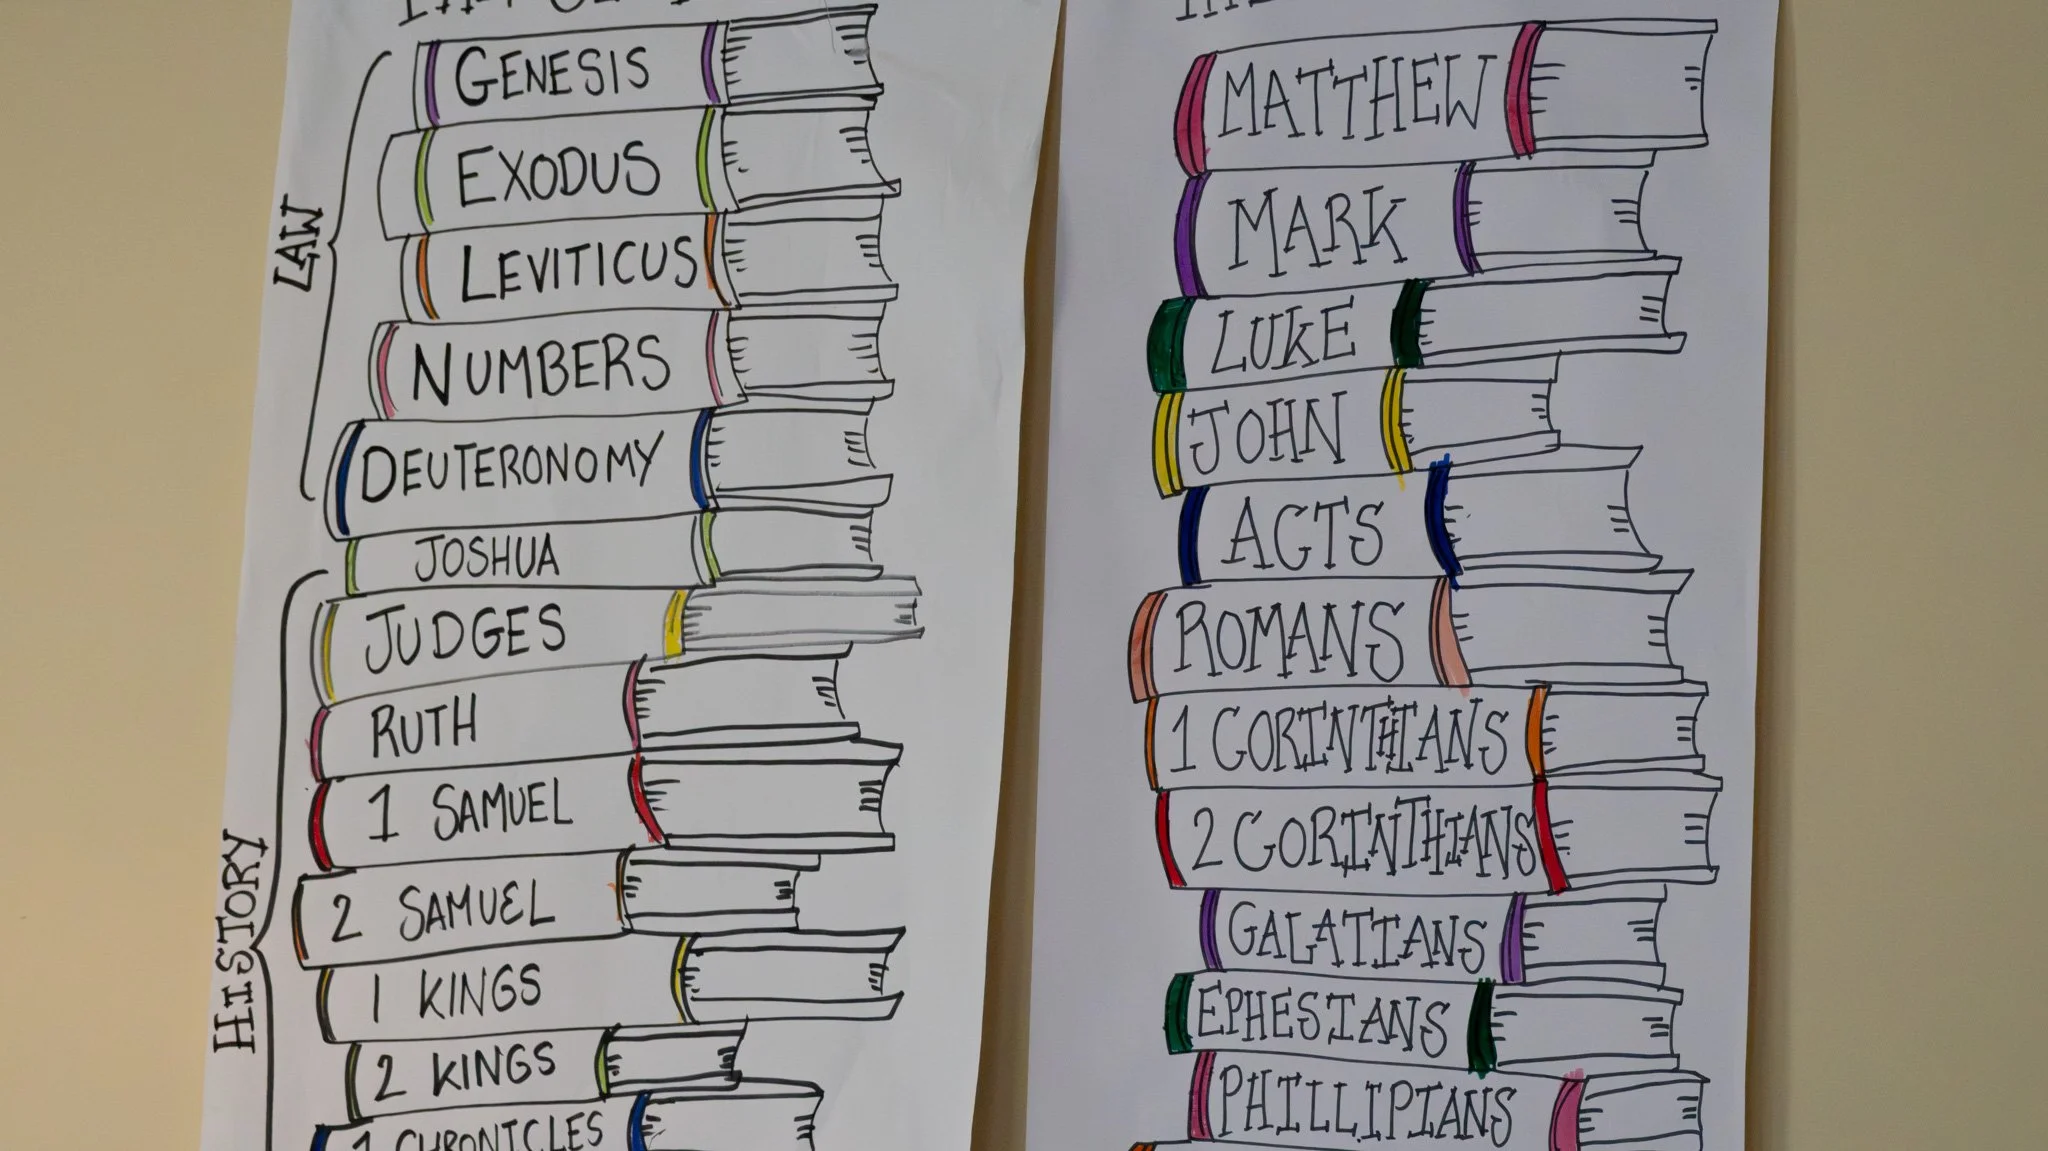 LAW
GENESIS
EXODUS
LEVITICUS
NUMBERS
DEUTERONOMY
HISTORY
JOSHUA
JUDGES
RUTH
1 SAMUEL
2 SAMUEL
1 KINGS
2 KINGS
1 CHRONICLES
MATTHEW
MARK
LUKE
JOHN
ACTS
ROMANS
1 CORINTHIANS
2 CORINTHIANS
GALATIANS
EPHESIANS
PHILLIPIANS